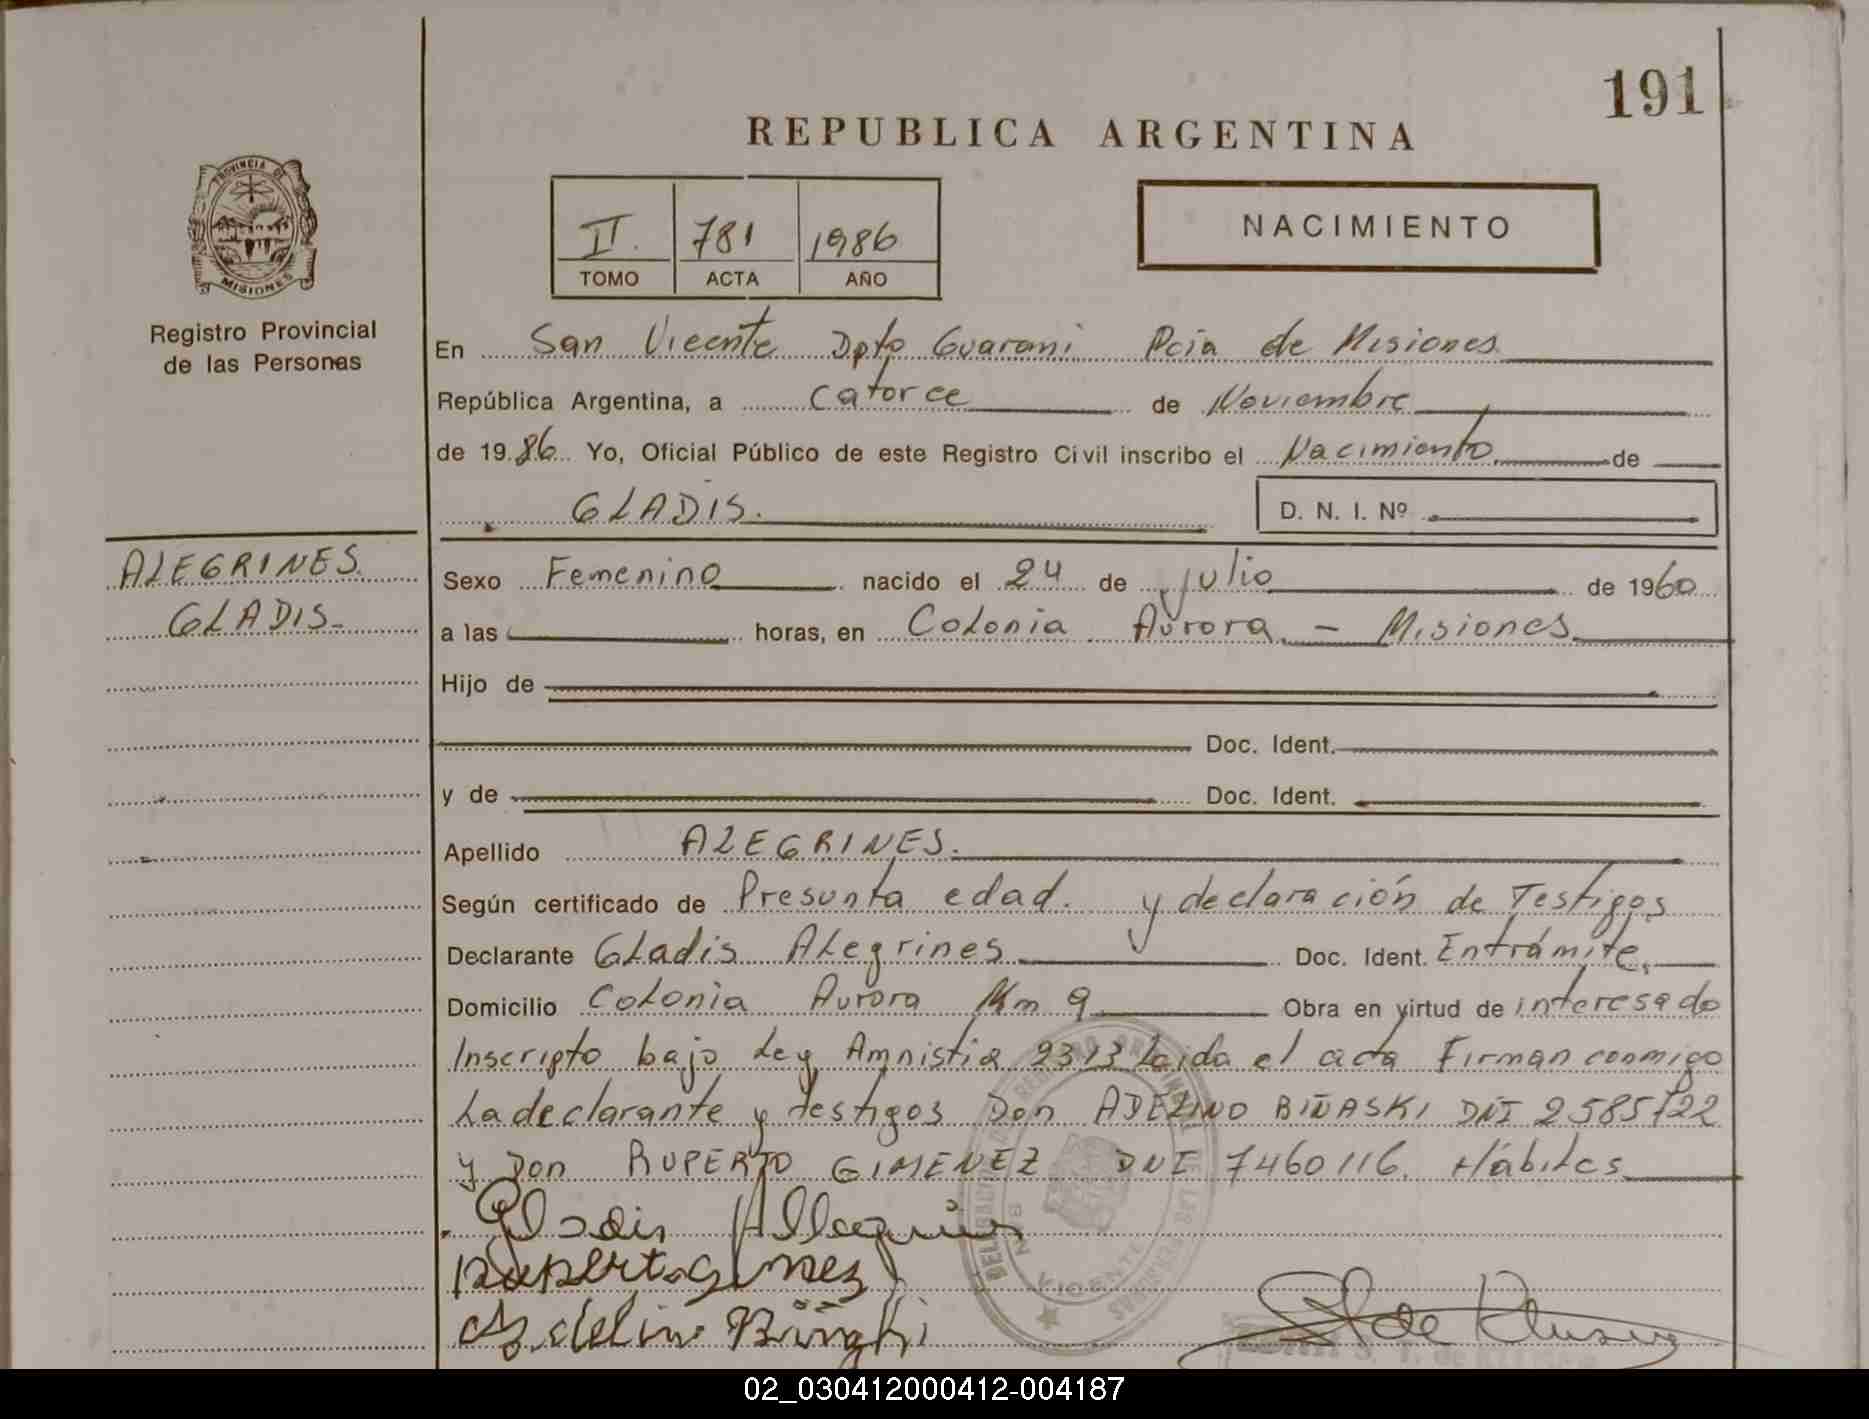 191
REPUBLICA ARGENTINA
PROVINCIA DE
MISIONES
Registro Provincial
de las Personas
II. 781 1986
TOMO ACTA AÑO
NACIMIENTO
En San Vicente Dpto Guarani Pcia de Misiones
República Argentina, a catorce de Noviembre
de 1986 Yo, Oficial Público de este Registro Civil inscribo el Nacimiento de
GLADIS.
D. N. I. Nº
ALEGRINES
GLADIS
Sexo Femenino nacido el 24 de julio de 1960
a las horas, en Colonia Aurora - Misiones
Hijo de
Doc. Ident.
y de Doc. Ident.
Apellido ALEGRINES.
Según certificado de Presunta edad. y declaración de Testigos
Declarante Gladis Alegrines Doc. Ident. Entrámite.
Domicilio Colonia Aurora Km 9 Obra en virtud de interesado
Inscripto bajo Ley Amnistia 2313 Leida el acta Firman conmigo
La declarante y testigos Don ADELINO BIÑASKI DNI 2585722
y Don RUPERTO GIMENEZ DNI 7460116. Hábiles
Gladis
VICENTE
02_030412000412-004187